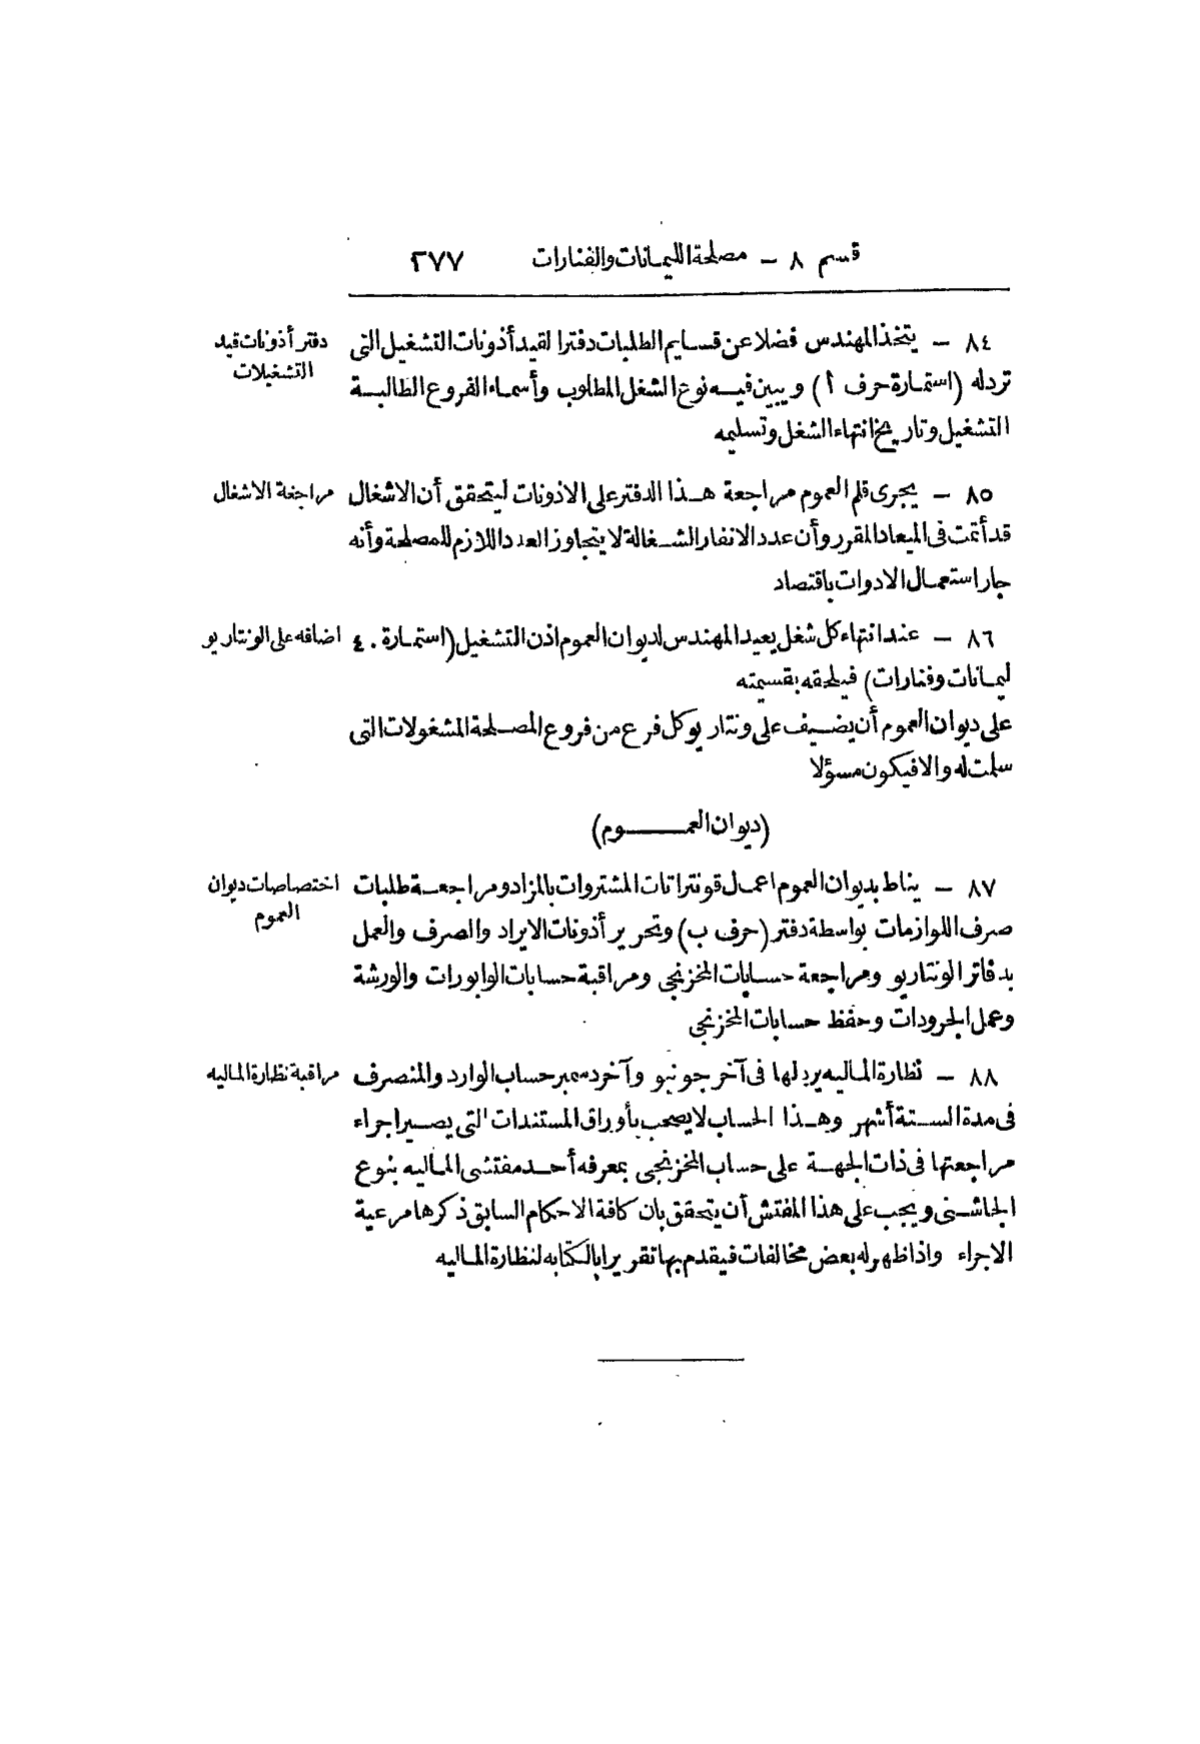 قسم ٨ – مصلحة الليمانات والفنارات ٢٧٧
٨٤ – يتخذ المهندس فضلا عن قسايم الطلبات دفترا لقيد أذونات التشغيل التى
دفتر أذونات قيد
التشغيلات
ترد له (استمارة حرف أ) ويبين فيه نوع الشغل المطلوب وأسماء الفروع الطالبة
التشغيل وتاريخ انتهاء الشغل وتسليمه
٨٥ – يجرى قلم العموم مراجعة هذا الدفتر على الاذونات ليتحقق أن الاشغال
مراجعة الاشغال
قد أتمت فى الميعاد المقرر وأن عدد الانفار الشغالة لا يتجاوز العدد اللازم للمصلحة وأنه
جار استعمال الادوات باقتصاد
٨٦ – عند انتهاء كل شغل يعيد المهندس لديوان العموم اذن التشغيل (استمارة ٤٠
اضافه على الونتاريو
ليمانات وفنارات) فيلحقه بقسيمته
على ديوان العموم أن يضيف على ونتاريو كل فرع من فروع المصلحة المشغولات التى
سلمت له والا فيكون مسؤلا
(ديوان العموم)
٨٧ – يناط بديوان العموم اعمال قونتراتات المشتروات بالمزاد ومراجعة طلبات
اختصاصات ديوان
العموم
صرف اللوازمات بواسطة دفتر (حرف ب) وتحرير أذونات الايراد والصرف والعمل
بدفاتر الونتاريو ومراجعة حسابات المخزنجى ومراقبة حسابات الوابورات والورشة
وعمل الجرودات وحفظ حسابات المخزنجى
٨٨ – نظارة الماليه يرد لها فى آخر جونيو وآخر دسمبر حساب الوارد والمنصرف
مراقبة نظارة الماليه
فى مدة الستة أشهر وهذا الحساب لا يصحب بأوراق المستندات التى يصير اجراء
مراجعتها فى ذات الجهة على حساب المخزنجى بمعرفه أحد مفتشى الماليه بنوع
الجاشنى ويجب على هذا المفتش أن يتحقق بان كافة الاحكام السابق ذكرها مرعية
الاجراء واذا ظهر له بعض مخالفات فيقدم بها تقريرا بالكتابه لنظارة الماليه